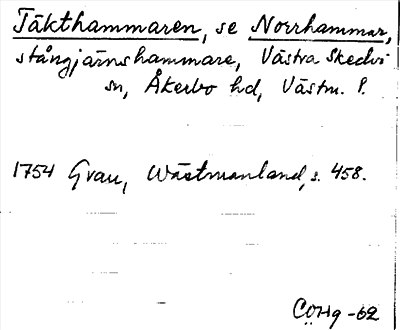 Täkthammaren, se Norrhammar,
stångjärnshammare, Västra Skedvi
sn, Åkerbo hd, Västm. l.
1754 Grau, Wästmanland, s. 458.
CÖHg -62